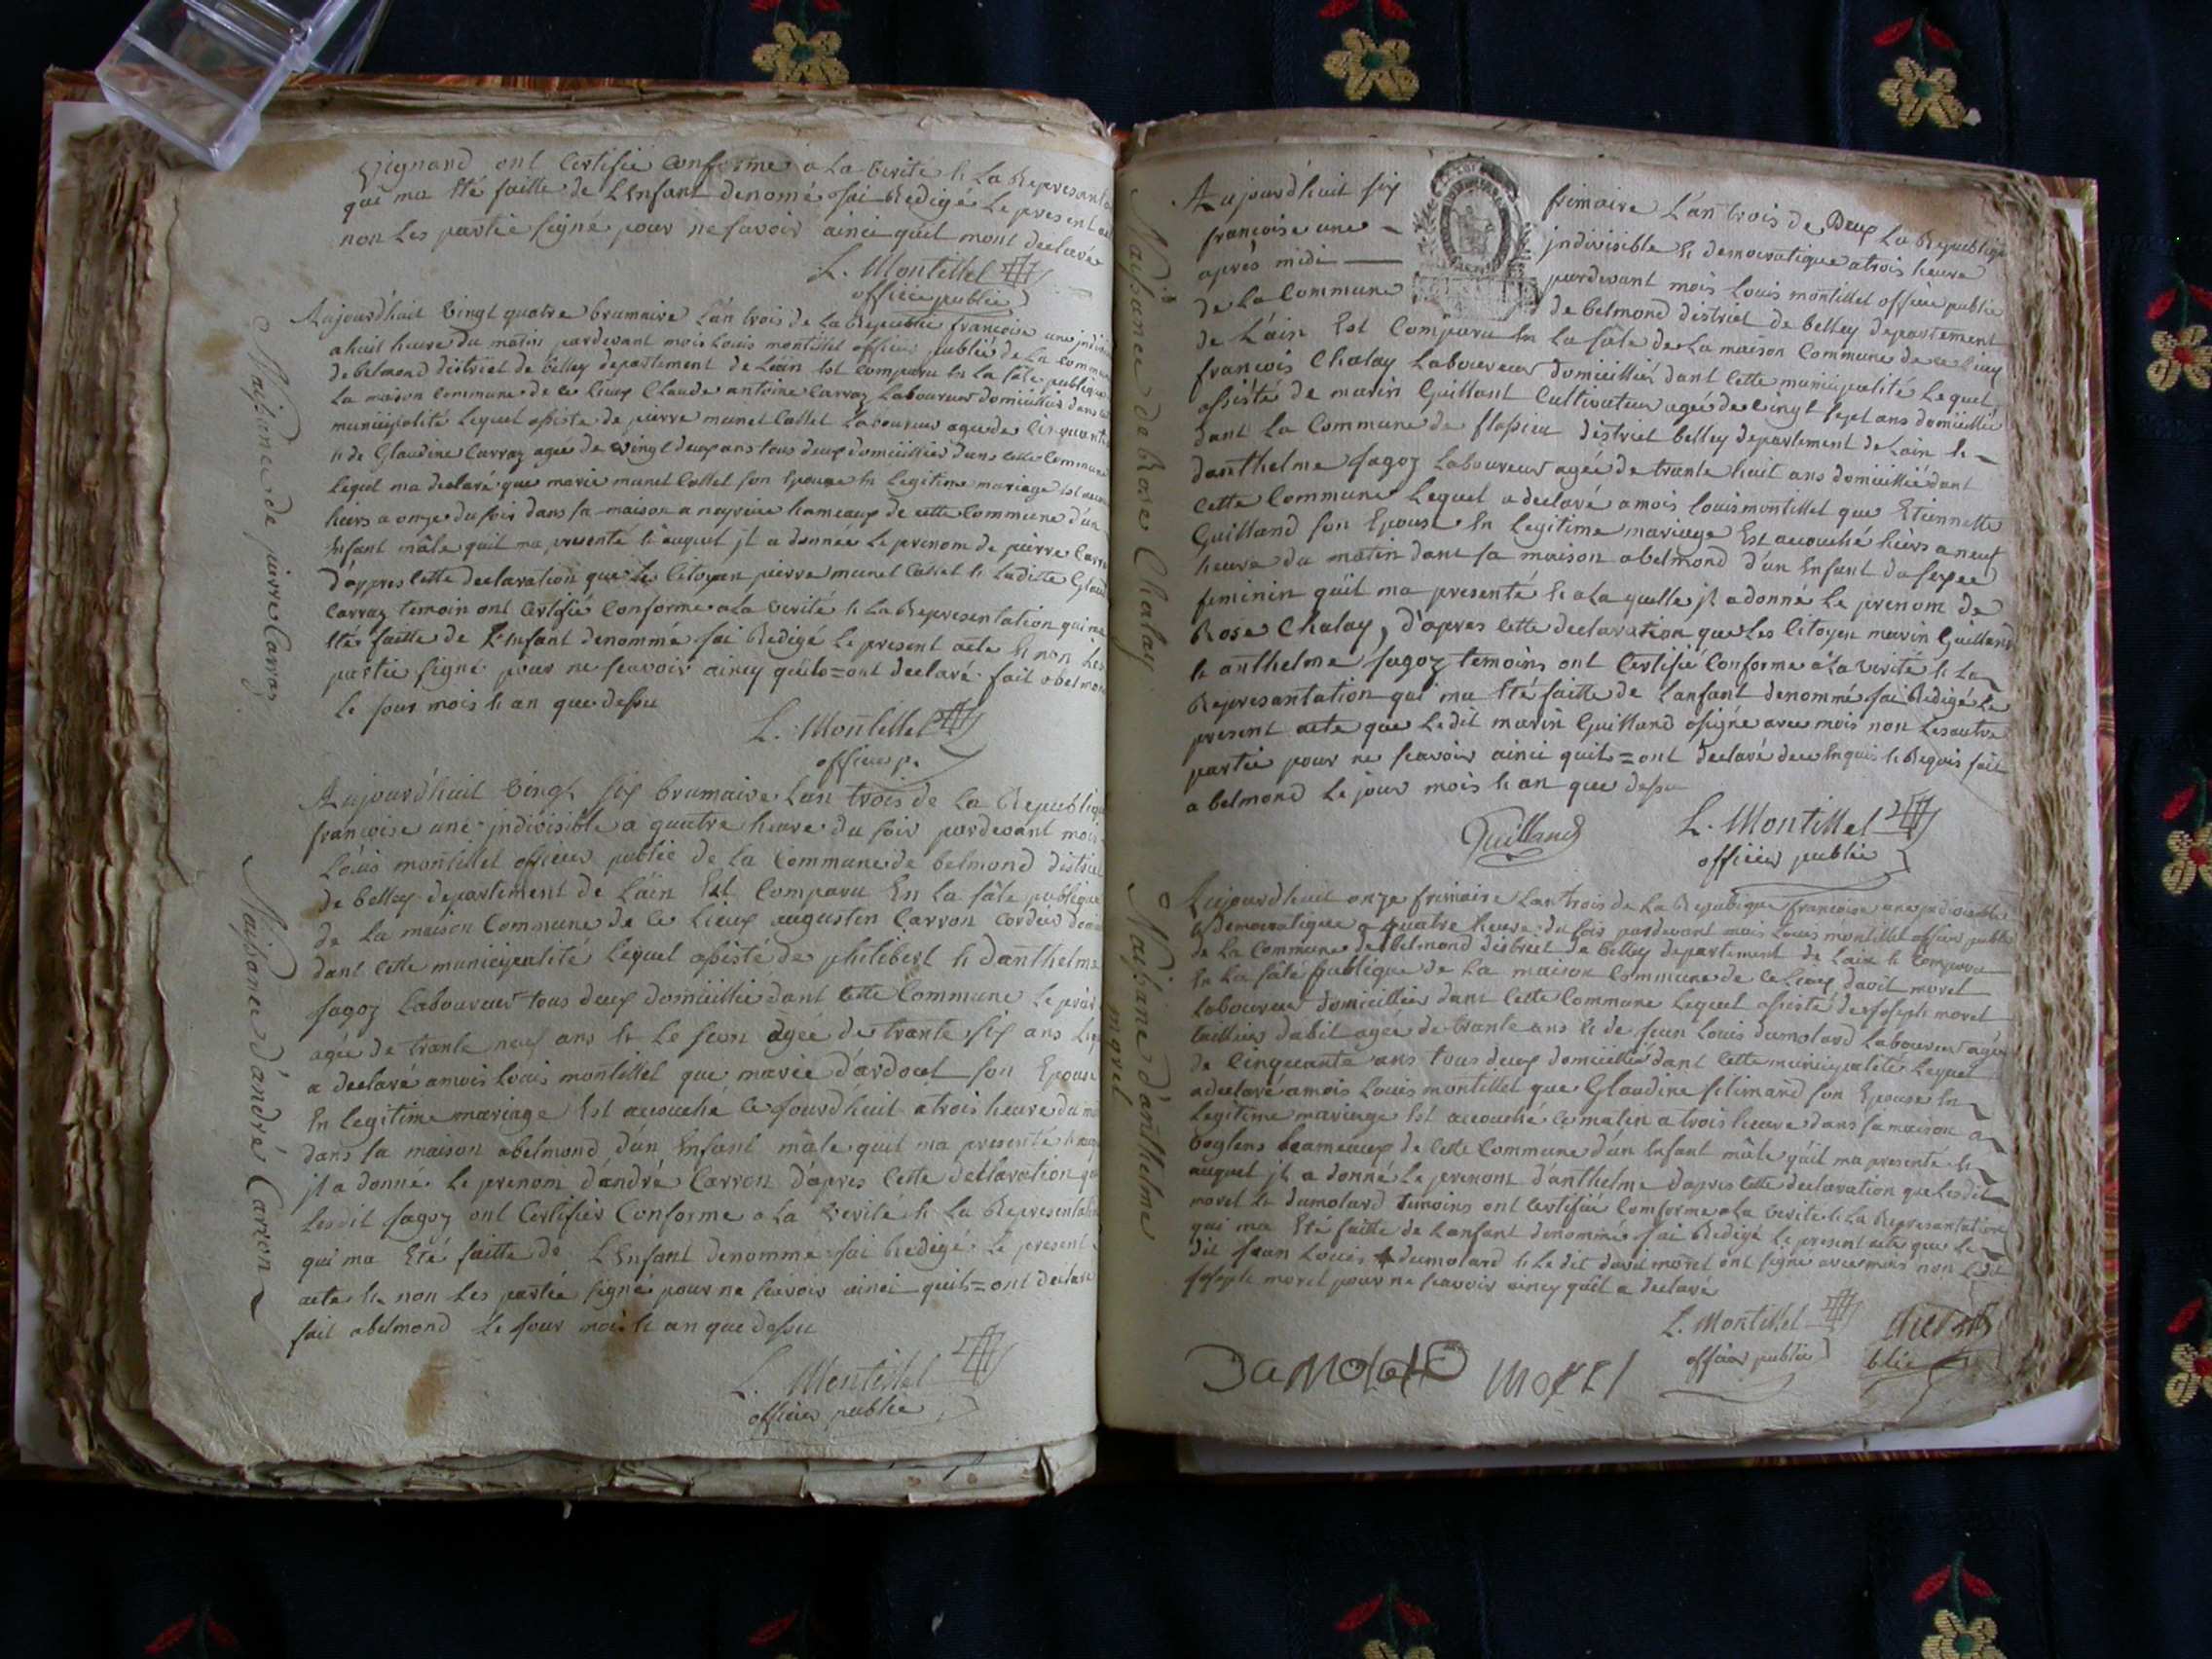 Gignand ont Certifié Conforme a La verité & La Represantation
que ma Eté faitte de L'Enfant denomé J'ai Redigé Le present acte
non Les partie signé pour ne savoir ainci quil mont déclaré
L. Montillet
officié public
Aujourd'huit vingt quatre brumaire L'an trois de La Republi francoise une indivi
a huit heure du matin pardevant mois Louis montillet officier publié de La commune
de belmond district de belley departement de L'ain Est comparu En La sale publique
La maison commune de ce Lieux Claude antoine Carraz Laboureur domicillié dans
municipalité Lequel assisté de pierre munet Collet Laboureur agé de Cinquante
& de Glaudine Carraz agée de vingt deux ans tous deux domicilliés dans cette commune
Lequel ma declaré que marie munet Collet son Epouse En Legitime mariage Est
hiers a onze du soir dans sa maison a neyrieu hameaux de cette commune d'un
Enfant mâle quil ma presenté & auquel jl a donnée Le prenom de pierre Carra
d'appres cette declaration que Les Citoyen pierre munet Collet & Laditte Glaud
Carraz temoin ont Certifié Conforme a La verité & La Representation qui ma
Eté faitte de L'Enfant denommé J'ai Redigé Le present acte & non Les
partie signé pour ne scavoir aincy quils=ont declaré fait a belmond
Le jour mois & an que dessu
L. Montillet
officier p.
Naissance de pierre Carraz
Aujourd'huit vingt six brumaire L'an trois de La Republique
francoise une indivisible a quatre heure du soir pardevant mois
Louis montillet officier publié de La Commune de belmond district
de belley departement de L'ain Est Comparu En La sâle publique
de La maison Commune de ce Lieux augustin Carron Cordier domi
dant cette municipalité Lequel assisté de philibert & d'anthelme
fagoz Laboureur tous deux domicillié dant cette Commune Le
agée de trante neuf ans & Le secon agée de trante six ans Leq
a declaré amois Louis montillet que marie d'ardouet son Epouse
En legitime mariage Est accouché ce Jourd'huit a trois heure du ma
dans sa maison abelmond d'un Enfant mâle quil ma presenté & auq
jl a donné Le prenom d'andré Carron d'apres cette declaration que
Lesdit fagoz ont Certifier Conforme a La verité & La Representati
qui ma Eté faitte de L'Enfant denommé J'ai Redigé Le present
acte & non Les partié signé pour ne scavoir ainci quils=ont declaré
fait abelmond Le Jour mois & an que dessu
L. Montillet
officier public
Naissance d'andré Carron
Aujourdhuit six frimaire L'an trois de Deux La Republiq
francoise une indivisible & democratique a trois heure
après midi pardevant mois Louis montillet officié public
de La Commune de belmond district de belley departement
de L'ain Est Comparu En La sâle de La maison Commune de ce Lieux
francois Chalay Laboureur domicillié dant cette municipalité Lequel
assisté de marin Guilland Cultivateur agé de vingt sept ans domicillié
dant La Commune de flaxieu district belley departement de Lain &
danthelme fagoz Laboureur agée de trante huit ans domicillié dant
cette Commune Lequel a declaré amois Louis montillet que Etiennette
Guilland son Epouse En Legitime mariage Est accouché hiers a neuf
heure du matin dans sa maison abelmond d'un Enfant du sexee
feminin quil ma presenté & a La quelle jl a donné Le prenom de
Rose Chalay, d'apres cette declaration que Les Citoyen marin Guilland
& anthelme fagoz temoins ont Certifié Conforme a La verité & La
Represantation qui ma Eté faitte de Lanfant denommé J'ai Redigé Le
present acte que Ledit marin Guilland asigné avec mois non Les autre
partié pour ne scavoir ainci quils=ont declaré de ce Enquis & Requis fait
a belmond Le jour mois & an que dessu
Guilland
L. Montillet
officier public
Naissance de Rose Chalay
Aujourdhuit onze frimaire Lan trois de La Republique francoise une indivisible
& Democratique a quatre heure du soir pardevant mois Louis montillet officier publié
de La Commune de belmond district de belley departement de Lain & Comparu
En La sale publique de La maison Commune de ce Lieux david moret
Laboureur domicillié dant cette Commune Lequel assisté de Joseph moret
taillieur dabit agée de trante ans & de Jean Louis dumolard Laboureur agée
de Cinquante ans tous deux domicillié dant cette municipalité Lequel
a declaré amois Louis montillet que Glaudine filimand son Epouse En
Legitime mariage Est accouché ce matin a trois heure dans sa maison a
voglens hameaux de cette Commune dun Enfant mâle quil ma presenté &
auquel jl a donné Le prenom d'anthelme dapres cette declaration que Lesdit
moret & dumolard temoins ont Certifié Conforme a La verité & La Represantation
qui ma Eté faitte de Lanfant denommé J'ai Redigé Le present acte que Le
dit Jean Louis dumolard & Le dit david moret ont signé avec mois non Ledit
Joseph moret pour ne scavoir aincy quil a declaré
L. Montillet
officier public
Dumolard moret
Naissance d'anthelme
moret